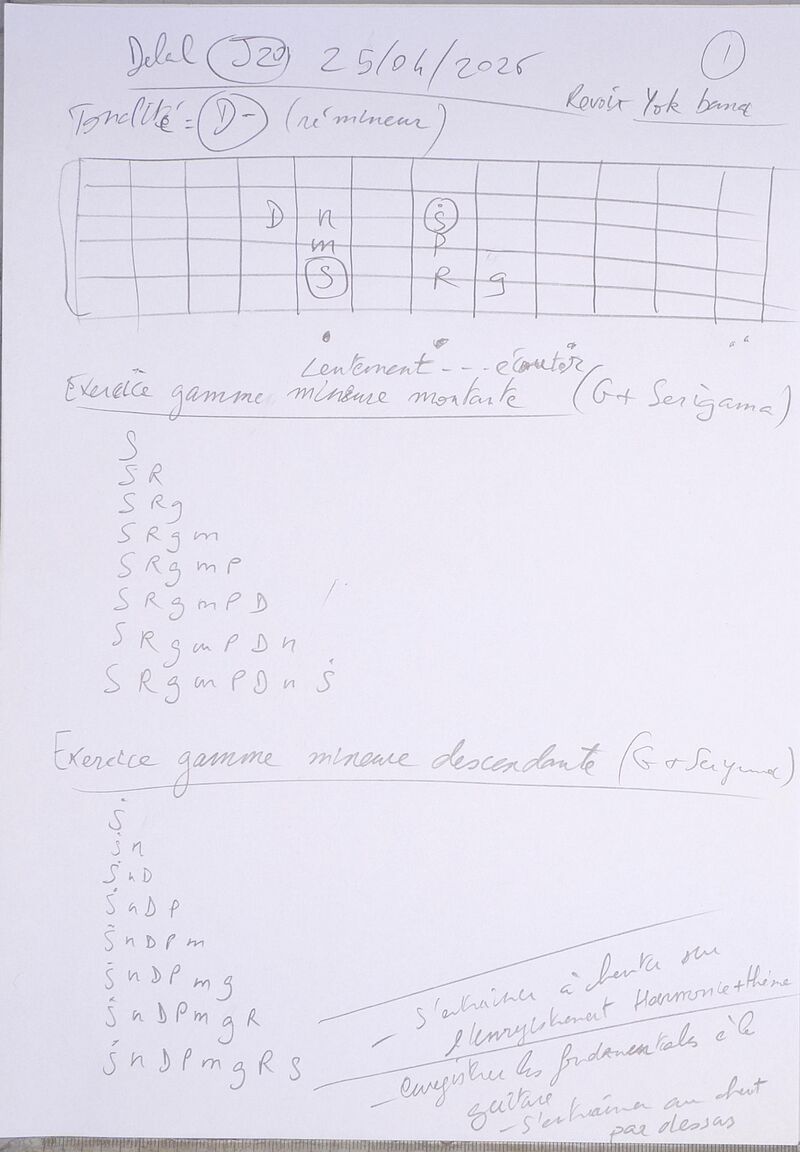 Delal J20 25/04/2026 1
Revoir Yok bana
Tonalité = D- (ré mineur)
D n Ṡ
m P
S R g
Lentement - - - écouter
Exercice gamme mineure montante (G+ Serigama)
S
S R
S R g
S R g m
S R g m P
S R g m P D
S R g m P D n
S R g m P D n Ṡ
Exercice gamme mineure descendante (G +
Ṡ
Ṡ n
Ṡ n D
Ṡ n D P
Ṡ n D P m
Ṡ n D P m g
Ṡ n D P m g R
Ṡ n D P m g R S
- S'entrainer à chanter sur
l'enregistrement Harmonie + thème
- enregistrer les fondamentales à la
guitare
- S'entrainer au chant
par dessus